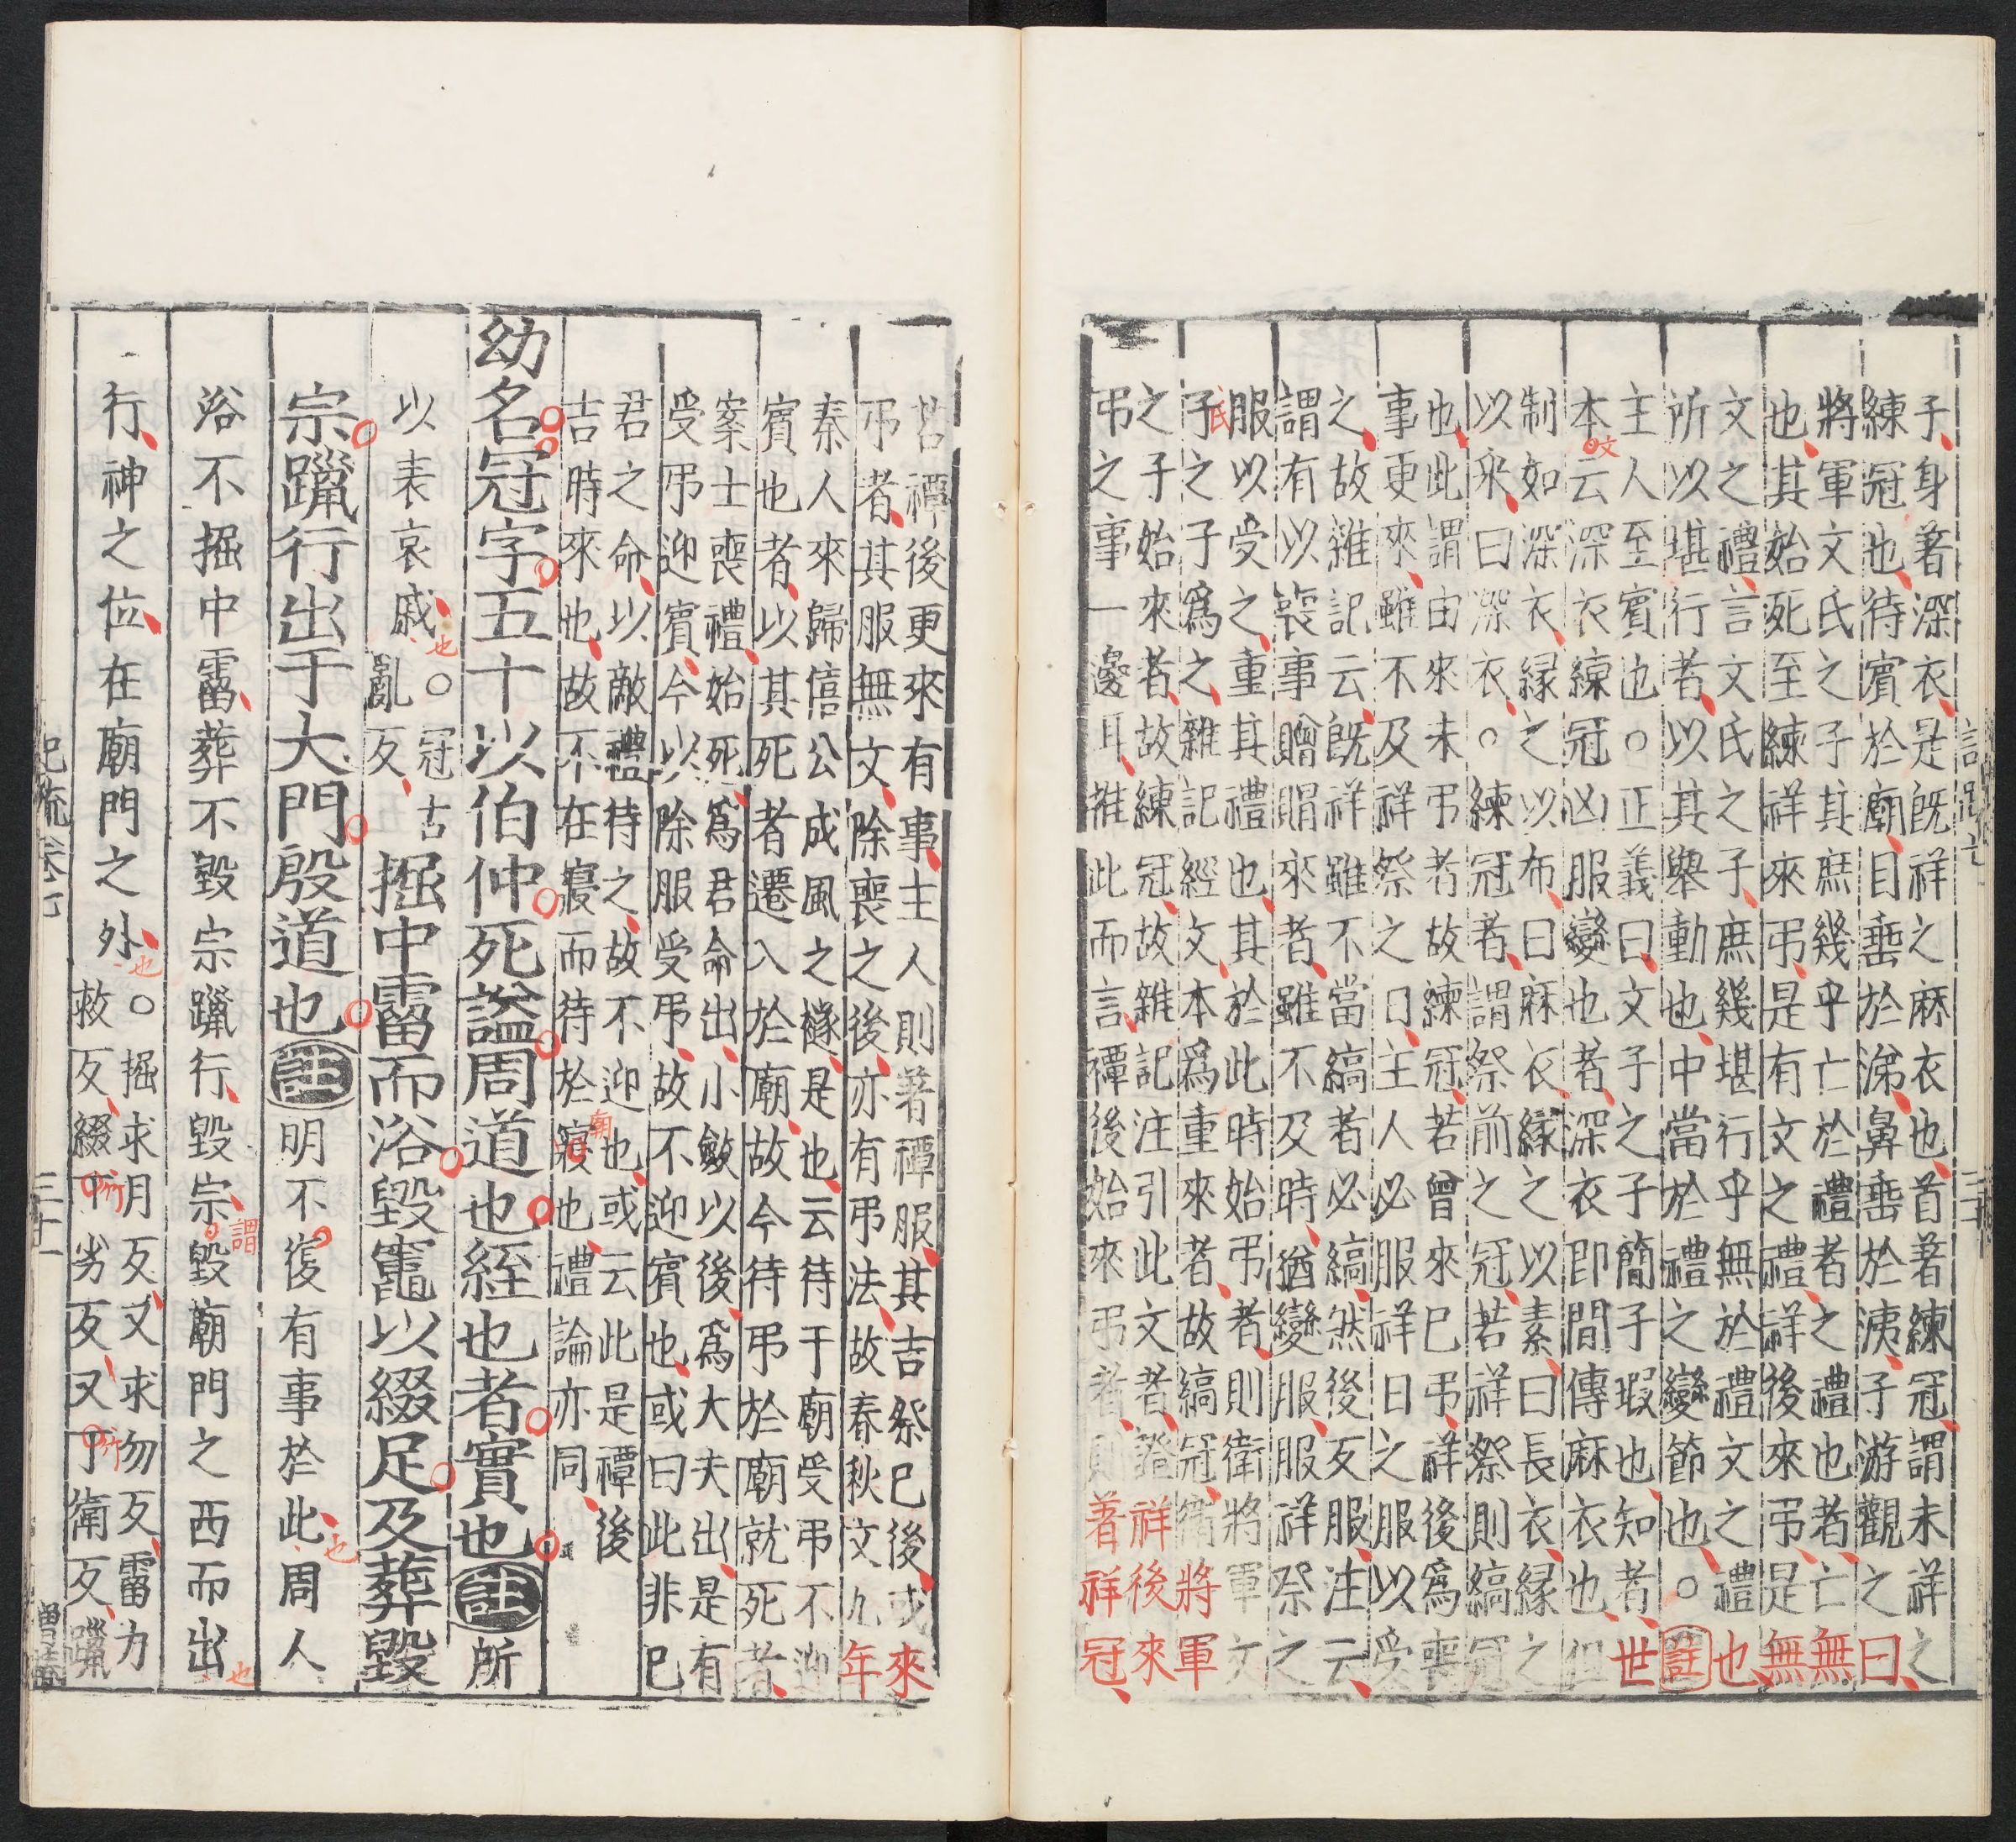 子身著深衣是既祥之麻衣也首著練冠謂未祥之
練冠也待賓於廟目垂於涕鼻垂於洟子游觀之曰
將軍文氏之子其庶幾乎亡於禮者之禮也者亡無
也其始死至練祥來弔是有文之禮祥後來弔是無
文之禮言文氏之子庶幾堪行乎無於禮文之禮也
所以堪行者以其舉動也中當於禮之變節也○註
主人至賓也○正義曰文子之子簡子瑕也知者世
本文云深衣練冠凶服變也者深衣即間傳麻衣也但
制如深衣緣之以布曰麻衣緣之以素曰長衣緣之
以采曰深衣○練冠者謂祭前之冠若祥祭則縞冠
也此謂由來未弔者故練冠若曾來已弔祥後爲喪
事更來雖不及祥祭之日主人必服祥日之服以受
之故雜記云既祥雖不當縞者必縞然後反服注云
謂有以喪事贈賵來者雖不及時猶變服服祥祭之
服以受之重其禮也其於此時始弔者則衛將軍文
氏子之子爲之雜記經文本爲重來者故縞冠衛將軍
之子始來者故練冠故雜記注引此文者證祥後來
弔之事一邊耳推此而言禫後始來弔者則著祥冠
記疏卷七
若禫後更來有事主人則著禫服其吉祭已後或來
弔者其服無文除喪之後亦有弔法故春秋文九年
秦人來歸僖公成風之襚是也云待于廟受弔不迎
賓也者以其死者遷入於廟故今待弔於廟就死者
案士喪禮始死爲君命出小斂以後爲大夫出是有
受弔迎賓今以除服受弔故不迎賓也或曰此非已
君之命以敵禮待之故不迎也或云此是禫後
吉時來也故不在寢而待於寢廟也禮論亦同
幼名冠字五十以伯仲死謚周道也絰也者實也註所
以表哀戚也○冠古亂反掘中霤而浴毀竈以綴足及葬毀
宗躐行出于大門殷道也註明不復有事於此也周人
浴不掘中霤葬不毀宗躐行毀宗謂毀廟門之西而出也
行神之位在廟門之外也○掘求月反又求勿反霤力
救反綴丁竹劣反又丁竹衛反躐
記疏卷七
三十一